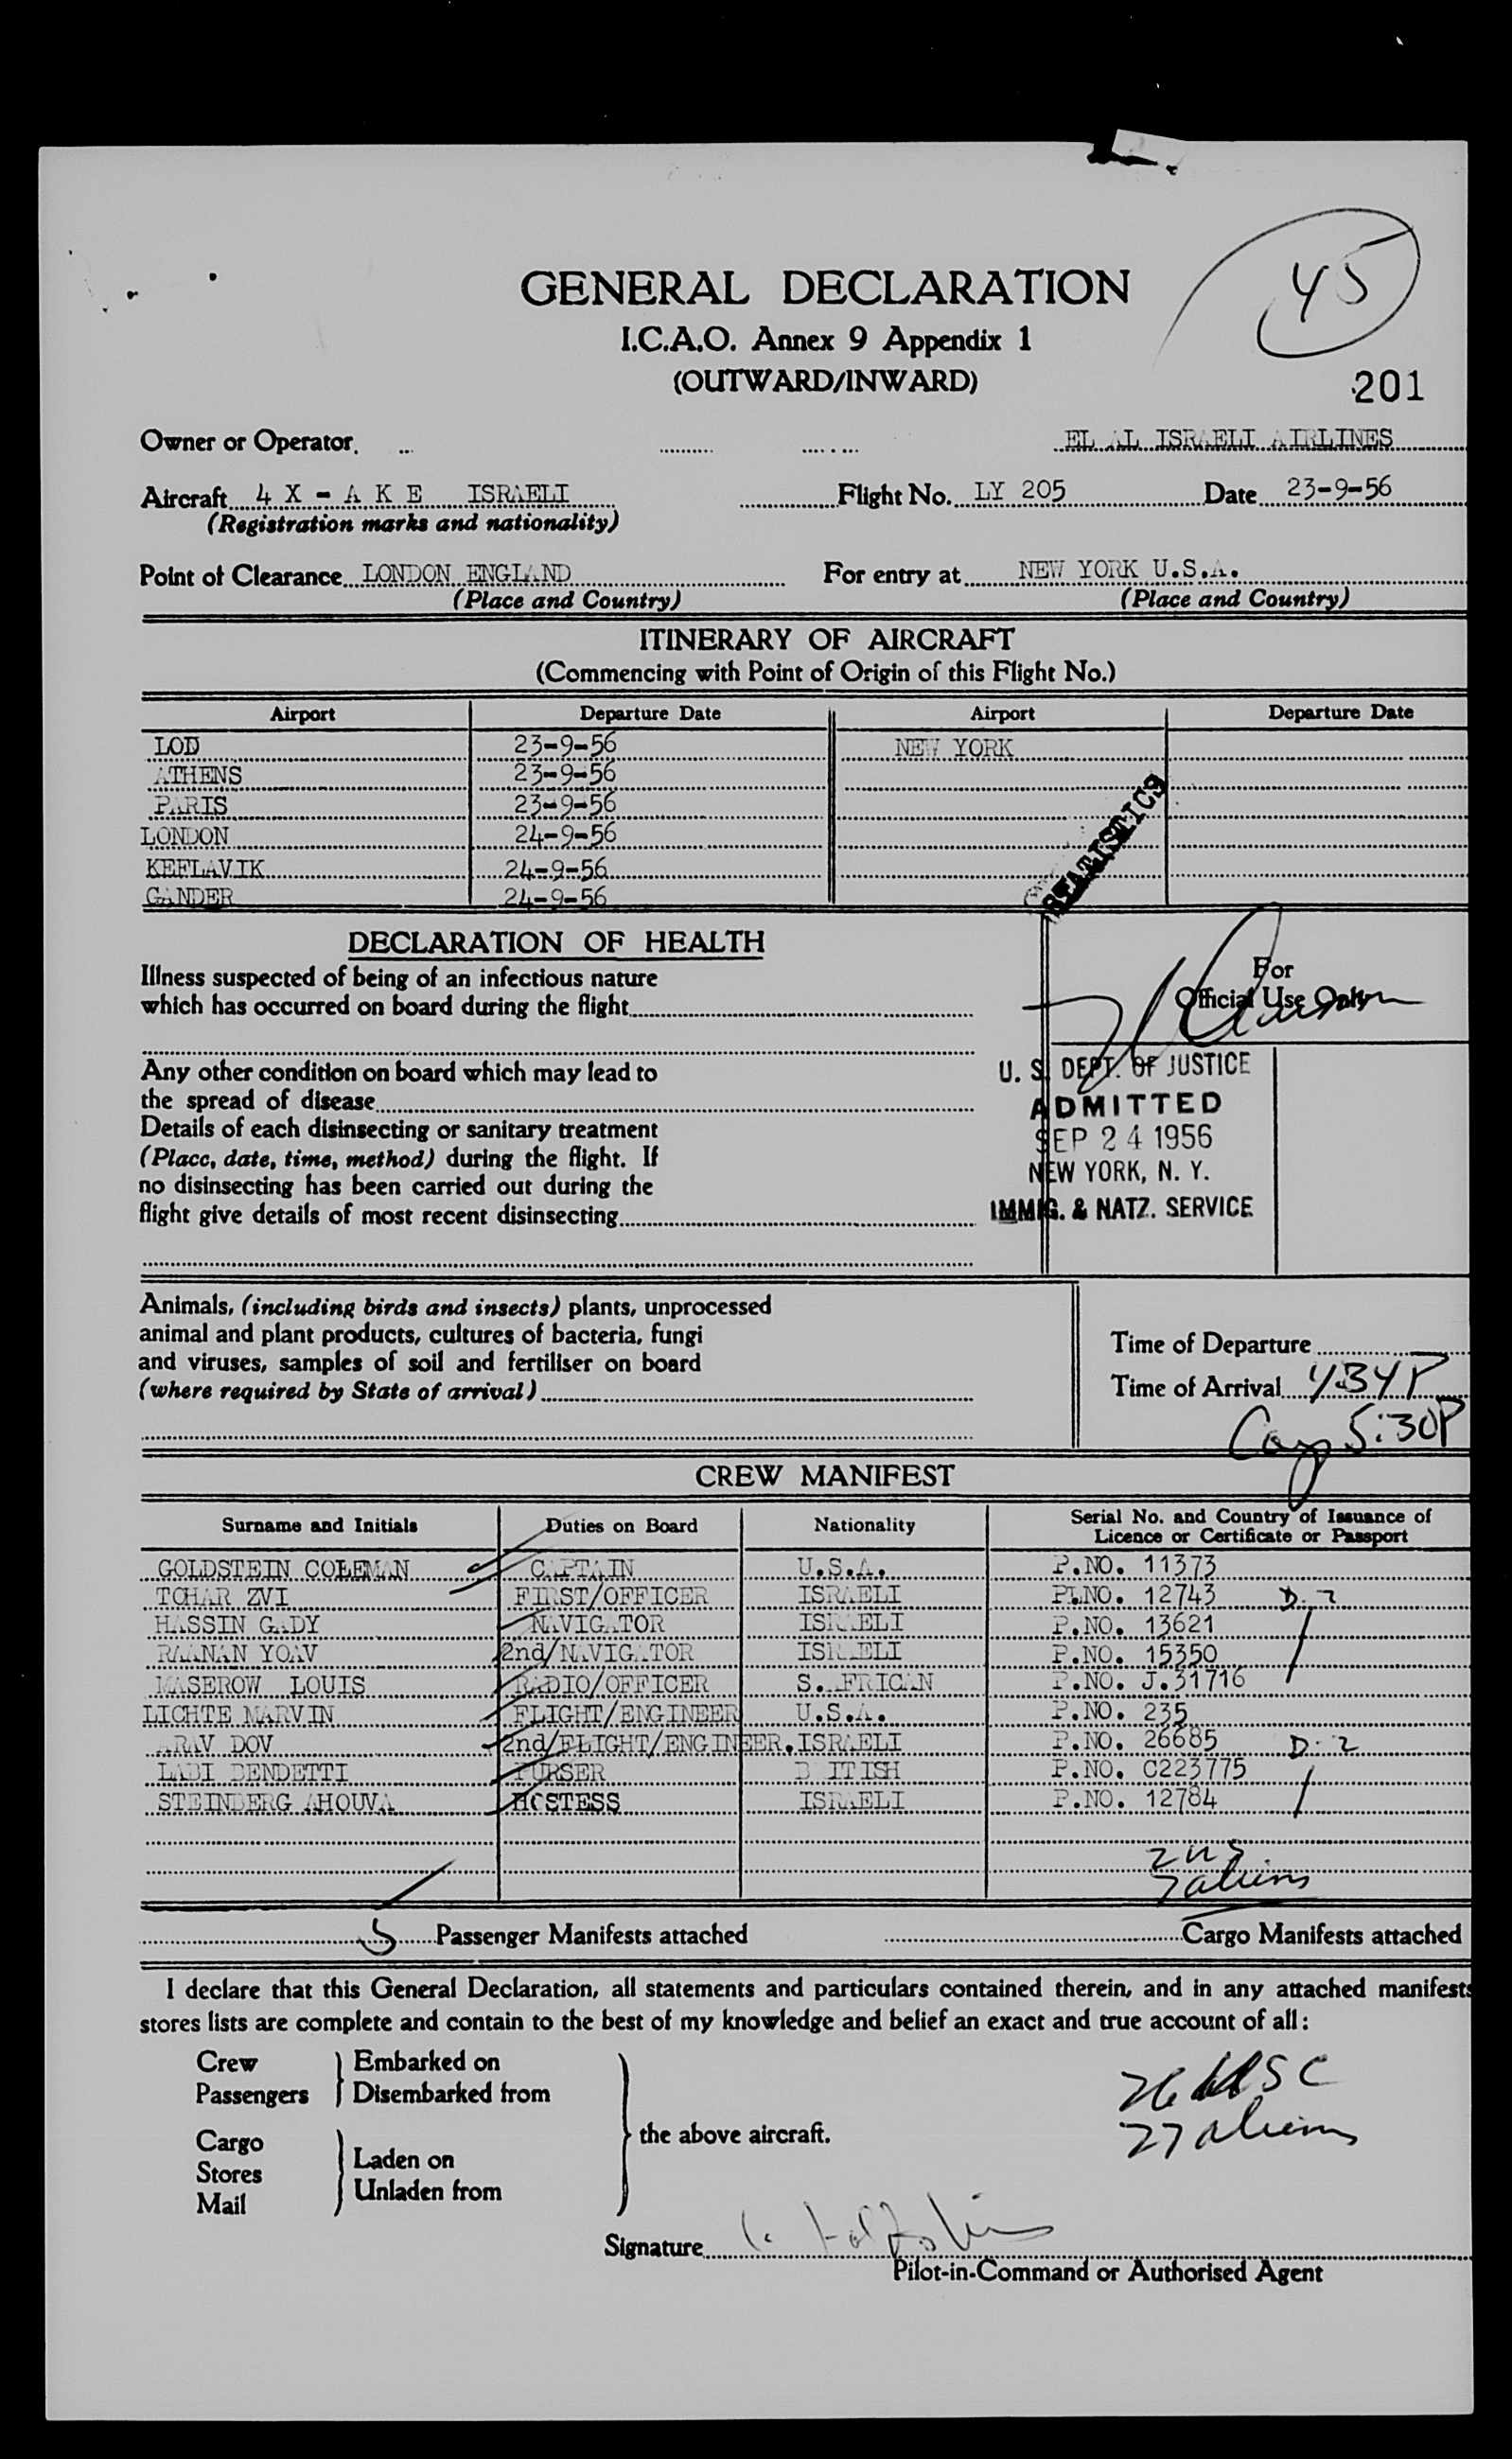 45
GENERAL DECLARATION
I.C.A.O. Annex 9 Appendix 1
(OUTWARD/INWARD)
201
Owner or Operator EL AL ISRAELI AIRLINES
Aircraft 4 X - A K E ISRAELI Flight No. LY 205 Date 23-9-56
(Registration marks and nationality)
Point of Clearance LONDON ENGLAND For entry at NEW YORK U.S.A.
(Place and Country) (Place and Country)
ITINERARY OF AIRCRAFT
(Commencing with Point of Origin of this Flight No.)
Airport Departure Date Airport Departure Date
LOD 23-9-56 NEW YORK
ATHENS 23-9-56
PARIS 23-9-56
LONDON 24-9-56
KEFLAVIK 24-9-56
GANDER 24-9-56
STATISTICS
DECLARATION OF HEALTH
Illness suspected of being of an infectious nature
which has occurred on board during the flight
Any other condition on board which may lead to
the spread of disease
Details of each disinsecting or sanitary treatment
(Place, date, time, method) during the flight. If
no disinsecting has been carried out during the
flight give details of most recent disinsecting
For
Official Use Only
U. S. DEPT. OF JUSTICE
ADMITTED
SEP 24 1956
NEW YORK, N. Y.
IMMIG. & NATZ. SERVICE
Animals, (including birds and insects) plants, unprocessed
animal and plant products, cultures of bacteria, fungi
and viruses, samples of soil and fertiliser on board
(where required by State of arrival)
Time of Departure
Time of Arrival 4:34P
5:30P
CREW MANIFEST
Surname and Initials Duties on Board Nationality Serial No. and Country of Issuance of
Licence or Certificate or Passport
GOLDSTEIN COLEMAN CAPTAIN U.S.A. P.NO. 11373
TOHAR ZVI FIRST/OFFICER ISRAELI P.NO. 12743 D-2
HASSIN GADY NAVIGATOR ISRAELI P.NO. 13621
RAANAN YOAV 2nd/NAVIGATOR ISRAELI P.NO. 15350
MASEROW LOUIS RADIO/OFFICER S. AFRICAN P.NO. J.31716
LICHTE MARVIN FLIGHT/ENGINEER U.S.A. P.NO. 235
ARAV DOV 2nd/FLIGHT/ENGINEER. ISRAELI P.NO. 26685 D-2
LADI BENDETTI PURSER BRITISH P.NO. C223775
STEINBERG AHOUVA HOSTESS ISRAELI P.NO. 12784
2 US
7 aliens
5 Passenger Manifests attached Cargo Manifests attached
I declare that this General Declaration, all statements and particulars contained therein, and in any attached manifests
stores lists are complete and contain to the best of my knowledge and belief an exact and true account of all:
Crew Embarked on
Passengers Disembarked from
the above aircraft.
Cargo
Stores Laden on
Mail Unladen from
26 USC
27 aliens
Signature
Pilot-in-Command or Authorised Agent